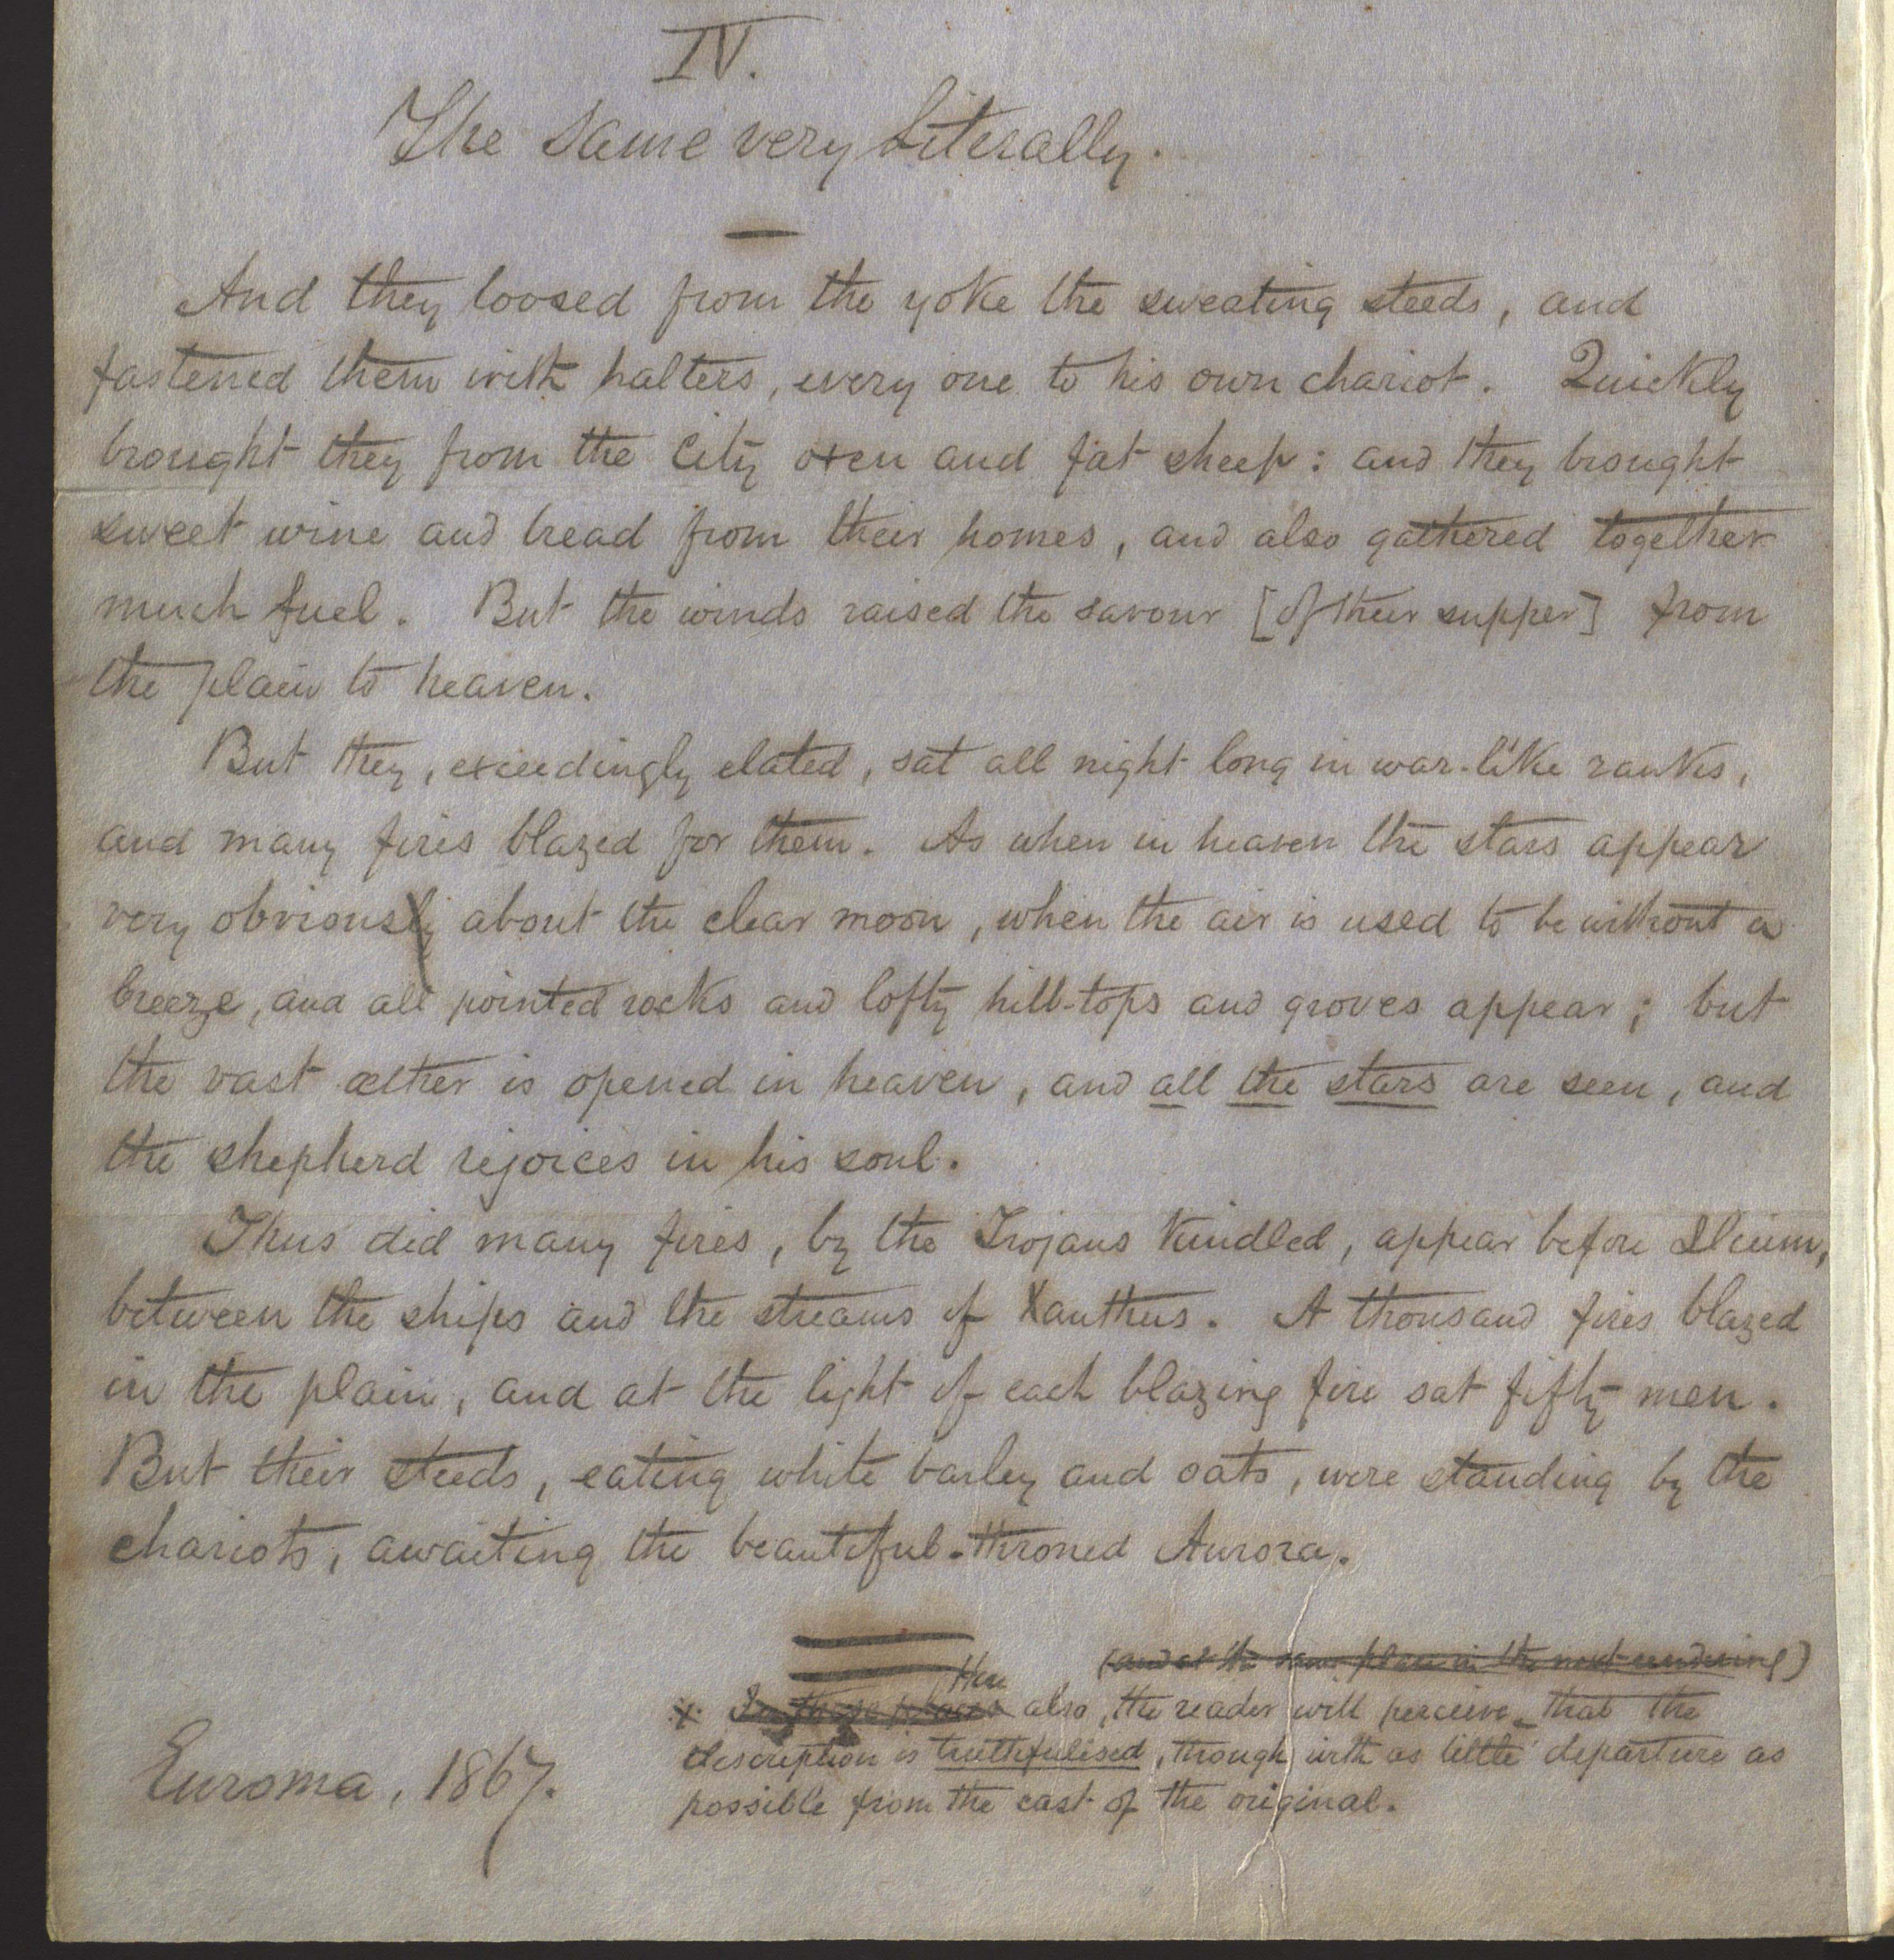 IV.
The Same very Literally.
And they loosed from the yoke the sweating steeds, and
fastened them with halters, every one to his own chariot. Quickly
brought they from the City oxen and fat sheep: and they brought
sweet wine and bread from their homes, and also gathered together
much fuel. But the winds raised the savour [of their supper] from
the plain to heaven.
But they, exceedingly elated, sat all night long in war-like ranks,
and many fires blazed for them. As when in heaven the stars appear
very obviously about the clear moon, when the air is used to be without a
breeze, and all pointed rocks and lofty hill-tops and groves appear; but
the vast æther is opened in heaven, and all the stars are seen, and
the shepherd rejoices in his soul.
Thus did many fires, by the Trojans kindled, appear before Ilium,
between the ships and the streams of Xanthus. A thousand fires blazed
in the plain, and at the light of each blazing fire sat fifty men.
But their steeds, eating white barley and oats, were standing by the
chariots, awaiting the beautiful-throned Aurora.
(and at the same place in the next rendering)
Here
x. In those places also, the reader will perceive that the
description is truthfulised, though with as little departure as
possible from the cast of the original.
Euroma, 1867.